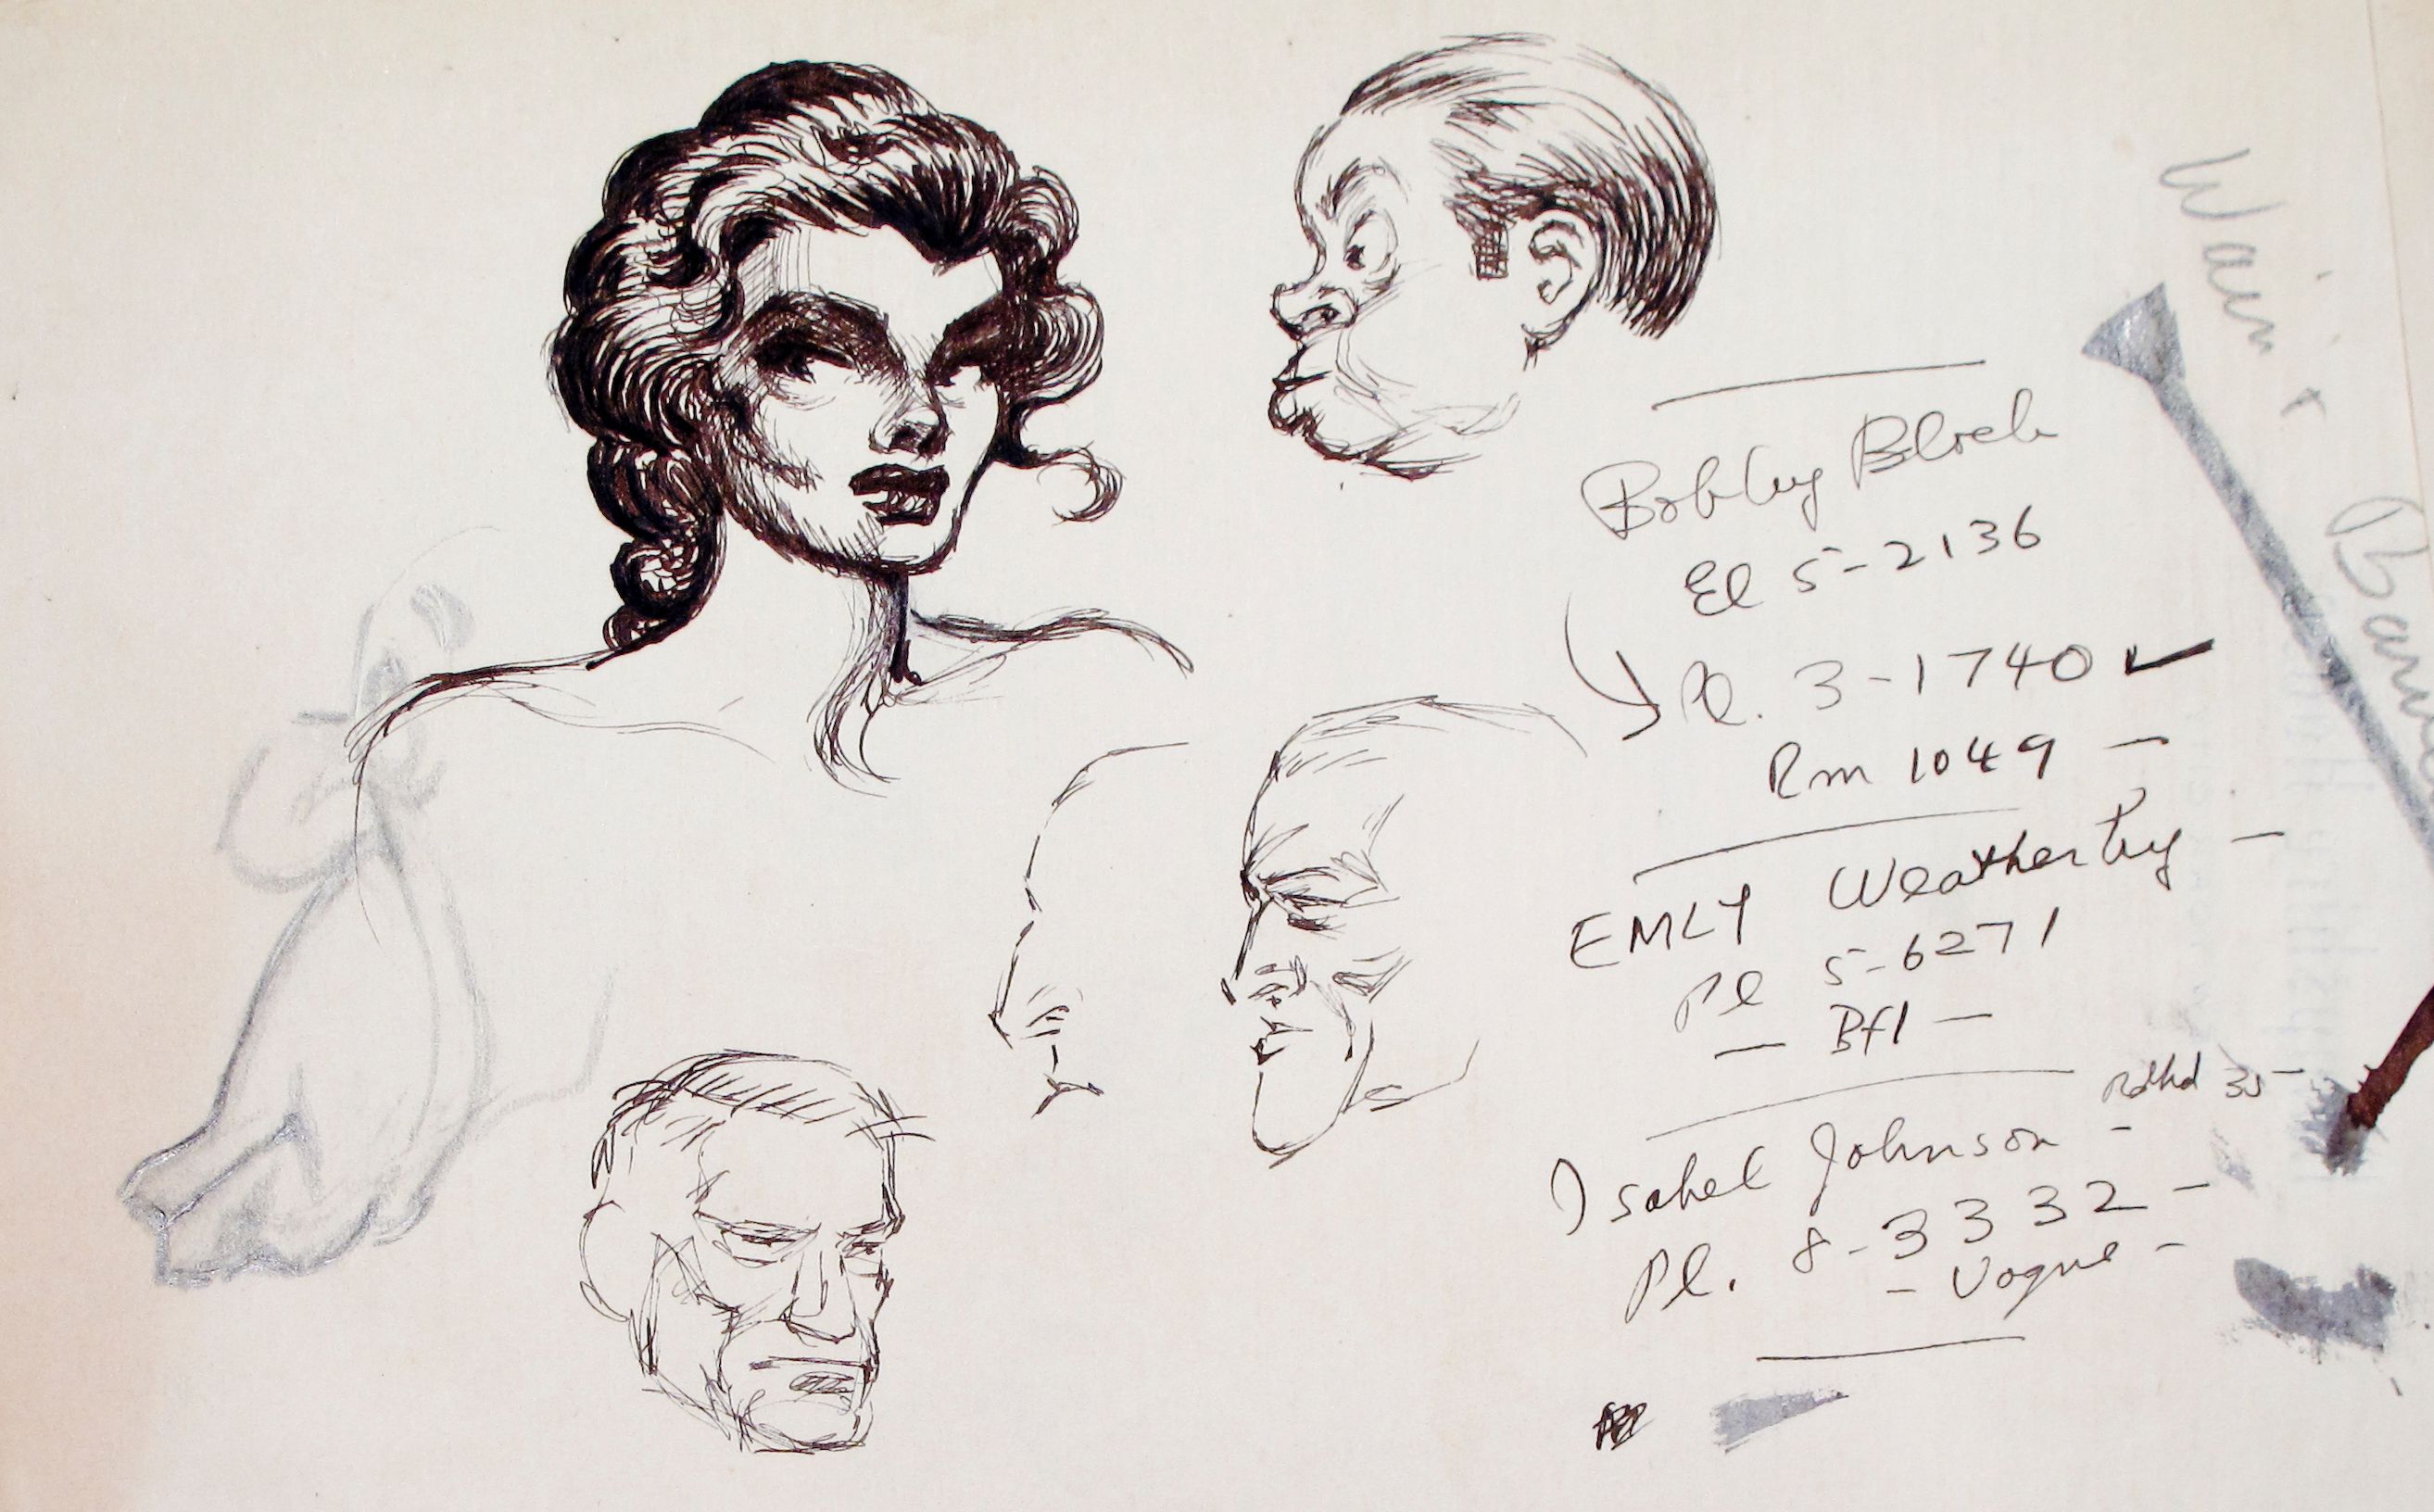 Bobby Bloch
El 5-2136
Pl. 3-1740 ✓
Rm 1049 —
EMLY Weatherby —
Pl 5-6271
— Bfl —
Rdhd 35 —
Isabel Johnson —
Pl. 8-3332 —
— Vogue —